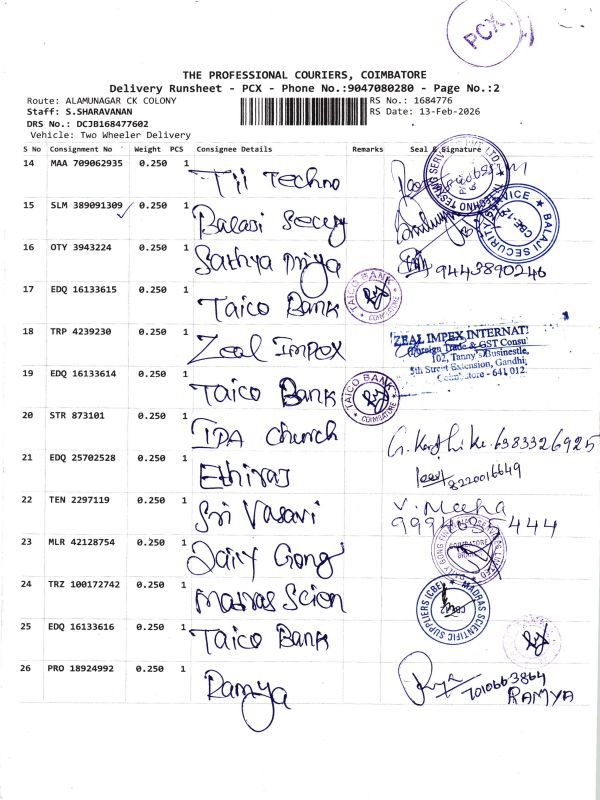 PCX
THE PROFESSIONAL COURIERS, COIMBATORE
Delivery Runsheet - PCX - Phone No.:9047080280 - Page No.:2
Route: ALAMUNAGAR CK COLONY RS No.: 1684776
Staff: S.SHARAVANAN RS Date: 13-Feb-2026
DRS No.: DCJB168477602
Vehicle: Two Wheeler Delivery
S No Consignment No Weight PCS Consignee Details Remarks Seal & Signature
14 MAA 709062935 0.250 1 Tii Techno
15 SLM 389091309 0.250 1 Balaji BALAJI SECURITY SERVICE CBE-12
16 OTY 3943224 0.250 1 Sathya Priya 9443890246
17 EDQ 16133615 0.250 1 Taico Bank TAICO BANK COIMBATORE
18 TRP 4239230 0.250 1 Zeal Impox
ZEAL IMPEX INTERNATI
Foreign Trade & GST Consul
102, Tanny's Businestle,
5th Street Extension, Gandhi
Coimbatore - 641 012
19 EDQ 16133614 0.250 1 Taico Bank TAICO BANK COIMBATORE
20 STR 873101 0.250 1 IPA church 6383326925
21 EDQ 25702528 0.250 1 Ethiraj 8220016649
22 TEN 2297119 0.250 1 Sri Vasavi V. Meeha
23 MLR 42128754 0.250 1 Gong
24 TRZ 100172742 0.250 1 Madras Scien MADRAS SCIENTIFIC SUPPLIERS (CBE)
25 EDQ 16133616 0.250 1 Taico Bank
26 PRO 18924992 0.250 1 Ramya 7010663864
RAMYA